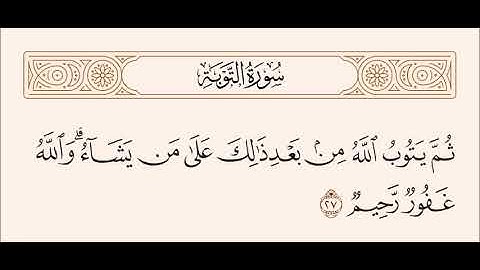 سُورَةُ التَّوْبَةِ
ثُمَّ يَتُوبُ ٱللَّهُ مِنۢ بَعْدِ ذَٰلِكَ عَلَىٰ مَن يَشَآءُۗ وَٱللَّهُ
غَفُورٌ رَّحِيمٌ ٢٧